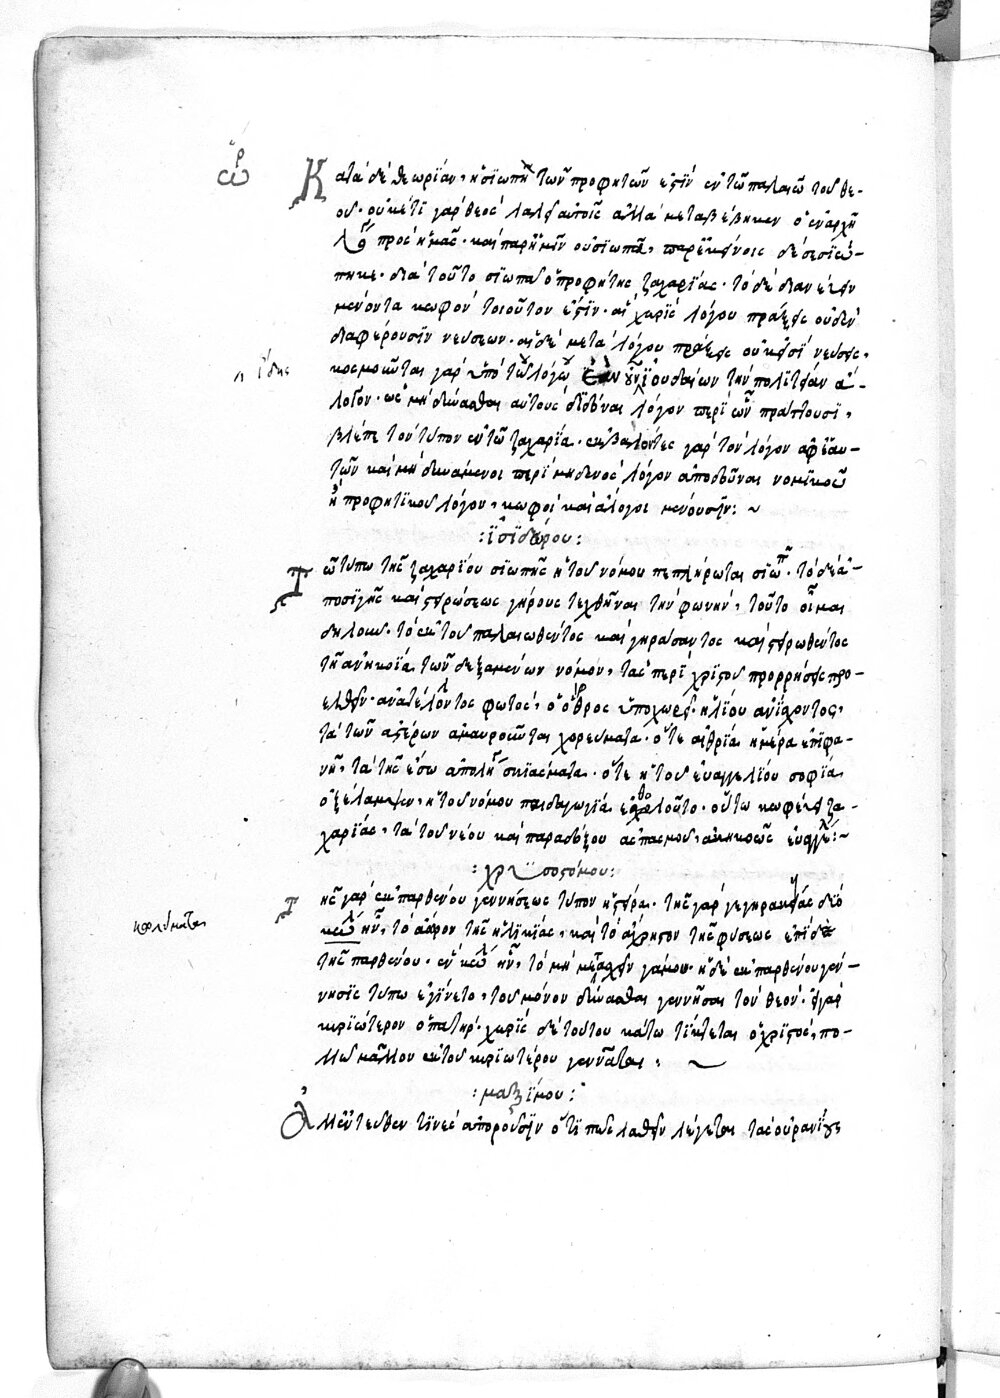 ὠρ
Κατὰ δὲ θεωρίαν, ἡ σιωπὴ τῶν προφητῶν ἐστὶν ἐν τῷ παλαιῷ τοῦ θε-
οῦ. οὐκέτι γὰρ θεὸς λαλεῖ αὐτοῖς ἀλλὰ μεταβέβηκεν ὁ ἐν ἀρχῇ
λόγος πρὸς ἡμᾶς. καὶ παρ' ἡμῖν οὐ σιωπᾷ, παρ' ἐκείνοις δὲ σεσιώ-
πηκε. διὰ τοῦτο σιωπᾷ ὁ προφήτης ζαχαρίας. τὸ δὲ διανεύειν
μένοντα κωφὸν τοιοῦτον ἐστὶν. αἱ χωρὶς λόγου πράξεις οὐδὲν
διαφέρουσιν νεύσεων. αἱ δὲ μετὰ λόγου πράξεις οὐκ εἰσὶ νεύσεις.
κοσμοῦνται γὰρ ὑπὸ τῶν λόγων ἐὰν οὖν ἴδῃς ἰουδαίων τὴν πολιτείαν ἄ-
λογον. ὡς μὴ δύνασθαι αὐτοὺς διδόναι λόγον περὶ ὧν πράττουσι,
βλέπε τὸν τύπον ἐν τῷ ζαχαρίᾳ. ἐκβαλόντες γὰρ τὸν λόγον ἀφ' ἑαυ-
τῶν καὶ μὴ δυνάμενοι περὶ μηδενὸς λόγον ἀποδοῦναι νομικοῦ
ἢ προφητικοῦ λόγου, κωφοὶ καὶ ἄλογοι μένουσιν: ~
:ἰσιδώρου:
Τῷ τύπῳ τῆς ζαχαρίου σιωπῆς ἡ τοῦ νόμου πεπλήρωται σιωπή. τὸ δὲ ἀ-
πὸ σιγῆς καὶ στειρώσεως γήρους τεχθῆναι τὴν φωνὴν, τοῦτο οἶμαι
δηλοῦν. τὸ ἐκ τοῦ παλαιωθέντος καὶ γηράσαντος καὶ στειρωθέντος
τῇ ἀνηκοΐᾳ τῶν δεξαμένων νόμου, τὰς περὶ χριστοῦ προρρήσεις προ-
ελθεῖν. ἀνατέλλοντος φωτὸς, ὁ ὄρθρος ὑποχωρεῖ. ἡλίου ἀνίσχοντος,
τὰ τῶν ἀστέρων ἀμαυροῦνται χορεύματα. ὅτε αἰθρία ἡμέρα ἐπιφα-
νῇ, τὰ τῆς ἕω ἀπολήγει σκιάσματα. ὅτε ἡ τοῦ εὐαγγελίου σοφία
ἐξέλαμψεν, ἡ τοῦ νόμου παιδαγωγία
χαρίας, τὰ τοῦ νέου καὶ παραδόξου ἀσπασμοῦ, ἀκηκοὼς εὐαγγέλια:~
:χρυσοστόμου:
Τῆς γὰρ ἐκ παρθένου γεννήσεως τύπον ἡ στεῖρα. τῆς γὰρ γεγηρακυίας διὸ
κεκώλυται
ἦν, τὸ ἄωρον τῆς ἡλικίας, καὶ τὸ ἄχρηστον τῆς φύσεως ἐπὶ δὲ
τῆς παρθένου. ἦν, τὸ μὴ μετασχεῖν γάμου. ἡ δὲ ἐκ παρθένου γέν-
νησις τύπῳ ἐγίνετο, τοῦ μόνον δύνασθαι γεννῆσαι τὸν θεὸν.
κυριώτερον ὁ πατὴρ. χωρὶς δὲ τούτου κάτω τίκτεται ὁ χριστὸς, πο-
λλῷ μᾶλλον ἐκ τοῦ κυριωτέρου γεννᾶται. ~
:μαξίμου:
Ἀλλ' ἐντεῦθεν τινὲς ἀποροῦσιν ὅτι πῶς λαθεῖν λέγεται τὰς οὐρανίους